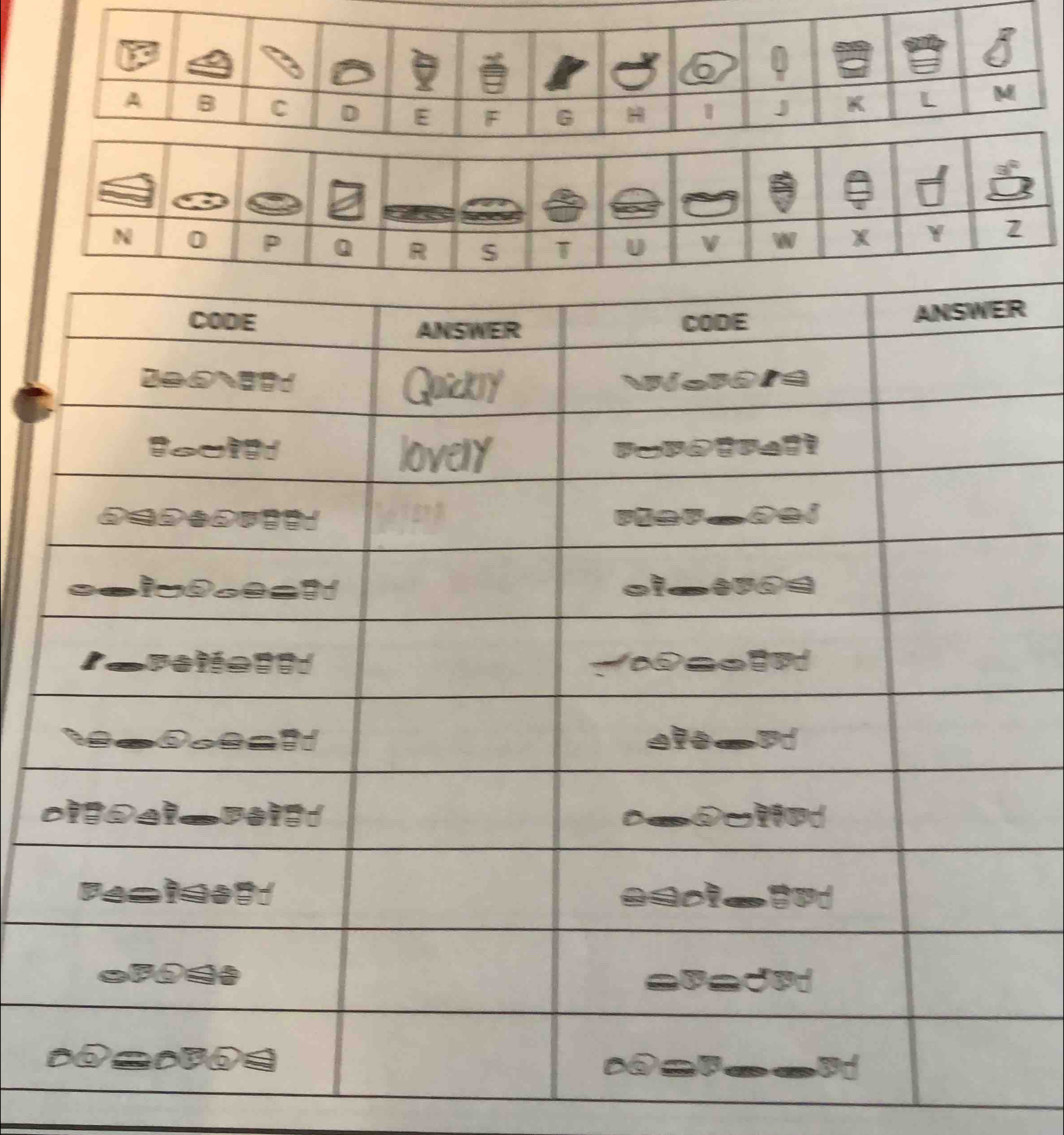 A B C D E F G H I J K L M
N O P Q R S T U V W X Y Z
CODE ANSWER CODE ANSWER
Quickly
lovely